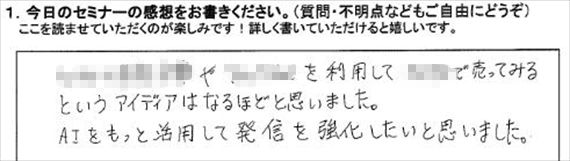 1. 今日のセミナーの感想をお書きください。(質問・不明点などもご自由にどうぞ)
ここを読ませていただくのが楽しみです！詳しく書いていただけると嬉しいです。
や を利用して で売ってみる
というアイディアはなるほどと思いました。
AIをもっと活用して発信を強化したいと思いました。